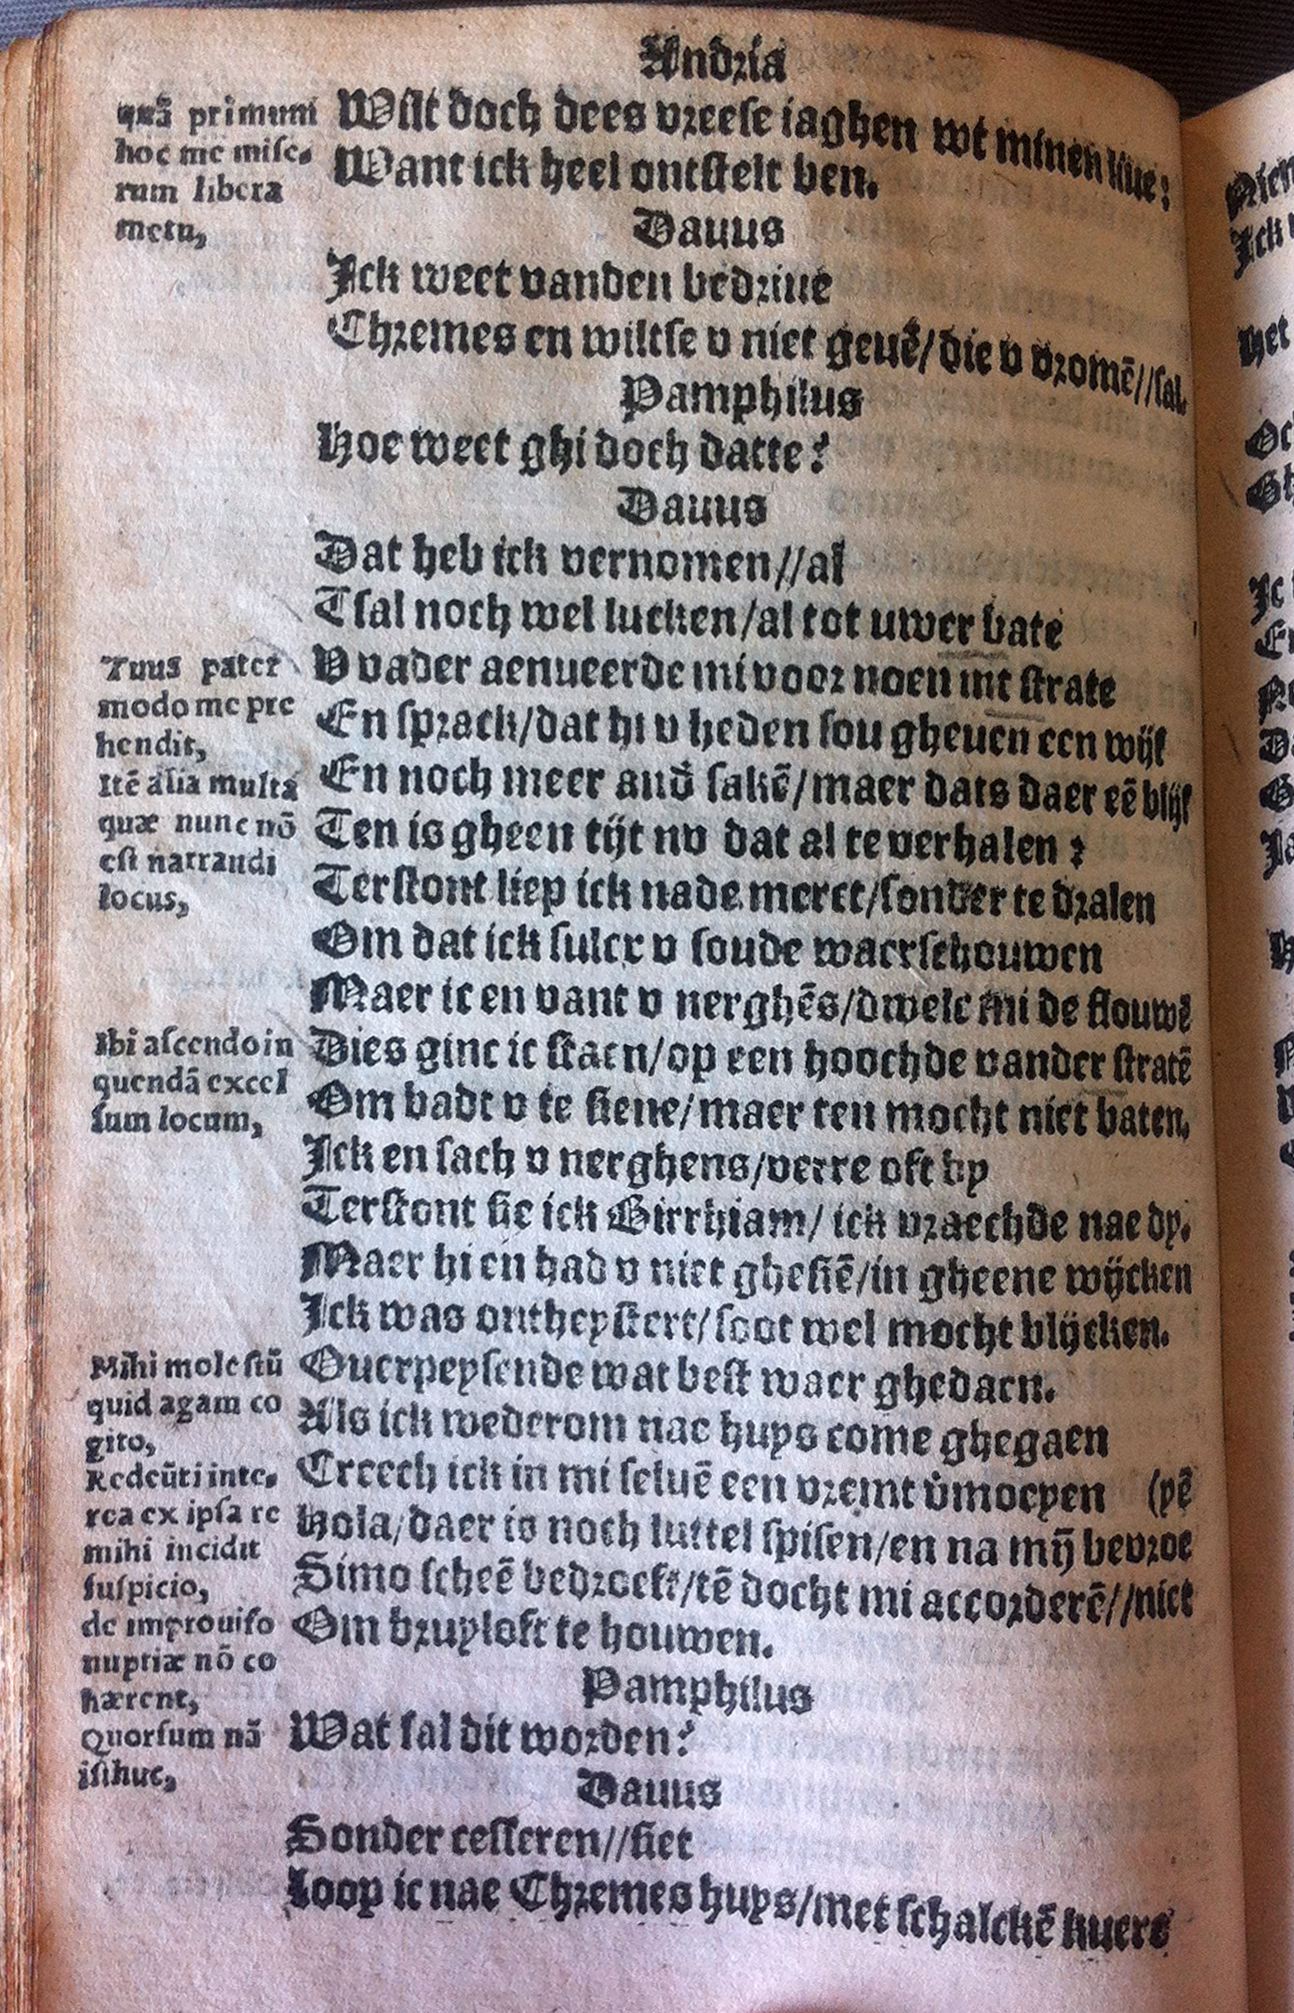 Andria
quā primum
hoc me mise-
rum libera
metu,
Wilt doch dees vreese iaghen wt minen liue:
Want ick heel ontstelt ben.
Dauus
Ick weet vanden bedriue
Chremes en wiltse v niet geuē/die v vromē//sal.
Pamphilus
Hoe weet ghi doch datte?
Dauus
Dat heb ick vernomen//al
Tsal noch wel lucken/al tot uwer bate
Tuus pater
modo me pre
hendit,
Itē alia multa
quæ nunc nō
est narrandi
locus,
V vader aenueerde mi voor noen int strate
En sprack/dat hi v heden sou gheuen een wijf
En noch meer and̄ sakē/maer dats daer eē blijf
Ten is gheen tijt nv dat al te verhalen:
Terstont liep ick nade merct/sonder te dralen
Om dat ick sulcx v soude waerschouwen
Maer ic en vant v nerghēs/dwelc mi de flouwē
Ibi ascendo in
quendā excel
sum locum,
Dies ginc ic staen/op een hoochde vander stratē
Om vadt v te siene/maer ten mocht niet baten.
Ick en sach v nerghens/verre oft by
Terstont sie ick Birrhiam/ ick vraechde nae dy.
Maer hi en had v niet ghesiē/in gheene wijcken
Ick was ontheystert/soot wel mocht blijcken.
Mihi molestū
quid agam co
gito,
Redeūti inte-
rea ex ipsa re
mihi incidit
suspicio,
de improuiso
nuptiæ nō co
hærent,
Quorsum nā
isthuc,
Ouerpeysende wat best waer ghedaen.
Als ick wederom nae huys come ghegaen
Creech ick in mi seluē een vremt v̄moeyen (pē
Hola/daer is noch luttel spisen/en na mȳ bevroe
Simo scheē bedroeft/tē docht mi accorderē//niet
Om bruyloft te houwen.
Pamphilus
Wat sal dit worden?
Dauus
Sonder cesseren//siet
Loop ic nae Chremes huys/met schalckē kuere